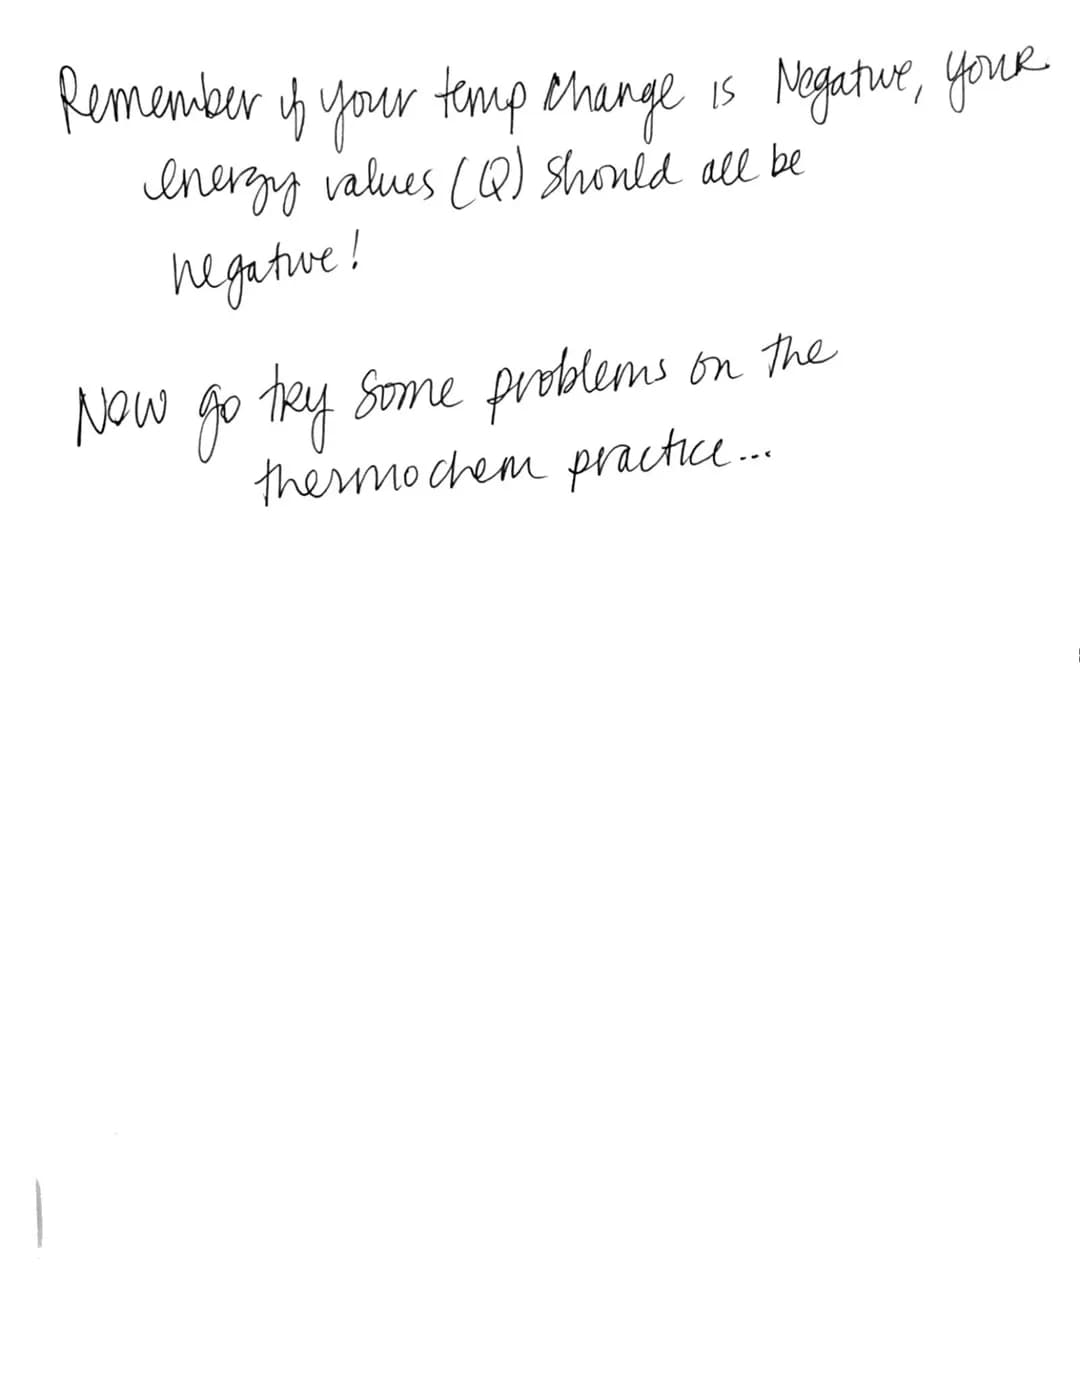 Remember if your temp change is Negative, your
energy values (Q) should all be
negative!
Now go try some problems on the
thermochem practice...